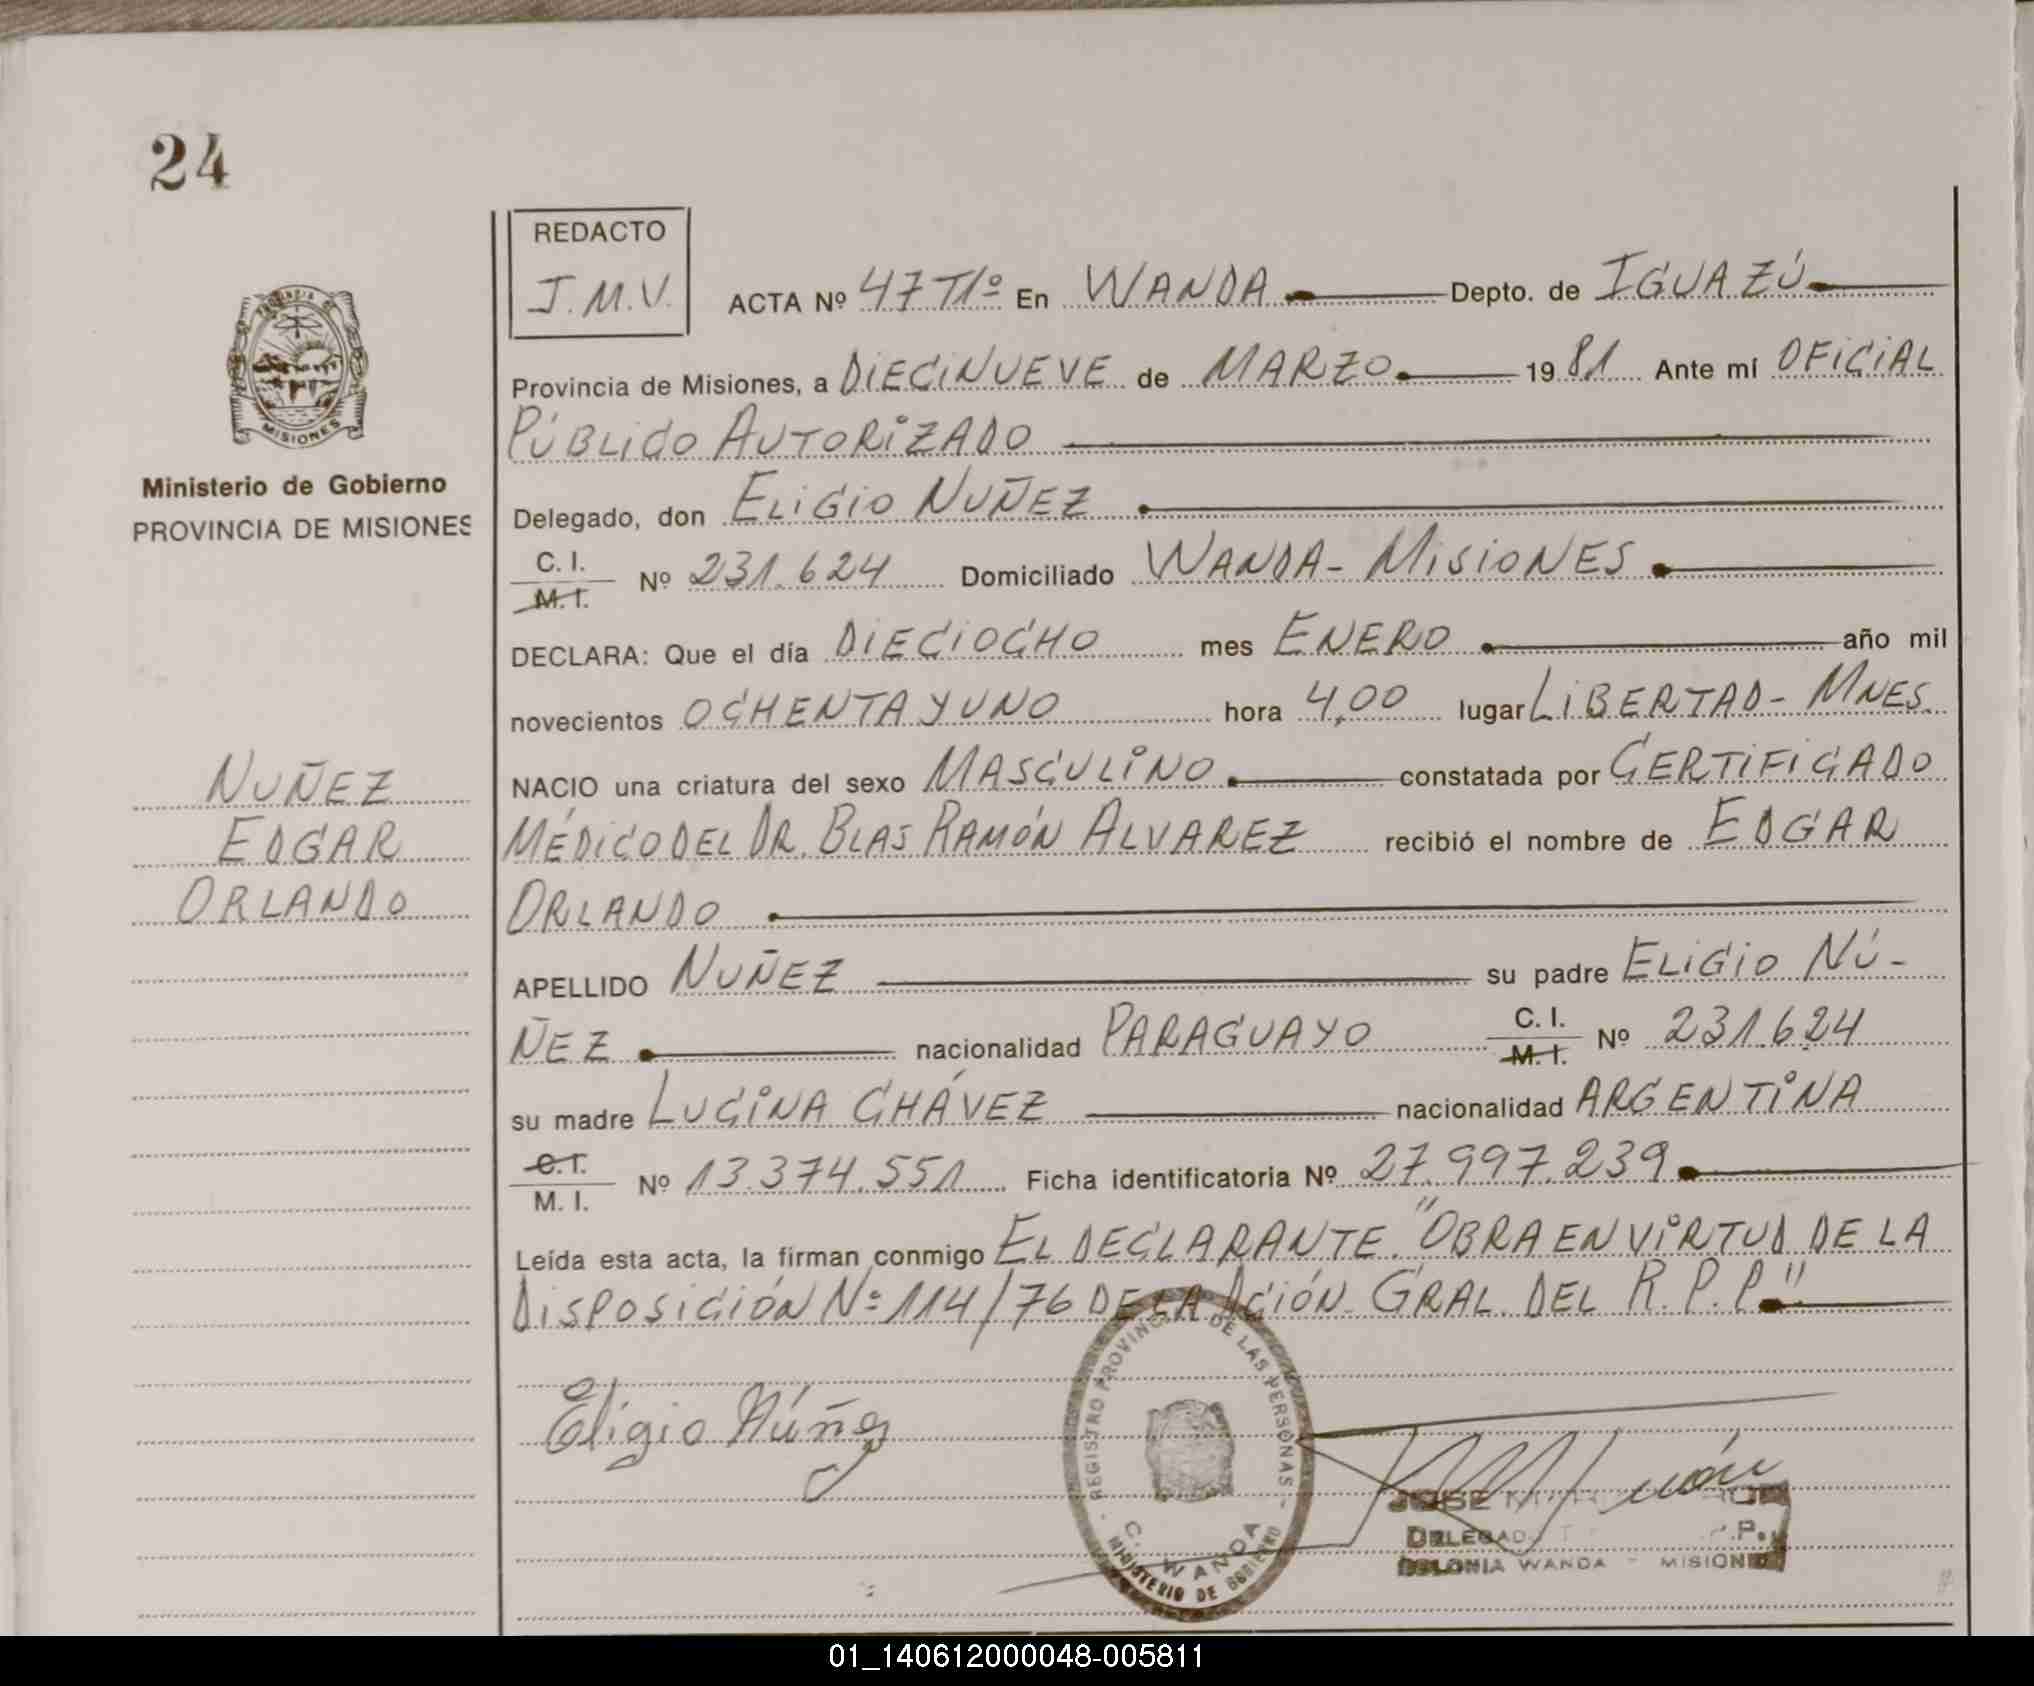 24
REDACTO
J.M.V.
ACTA Nº 47 Tº En WANDA Depto. de IGUAZÚ
Provincia de Misiones, a DIECINUEVE de MARZO 1981 Ante mí OFICIAL
PÚBLICO AUTORIZADO
Delegado, don ELIGIO NUÑEZ
C. I.
M. I. Nº 231.624 Domiciliado WANDA - MISIONES
DECLARA: Que el día DIECIOCHO mes ENERO año mil
novecientos OCHENTA Y UNO hora 4,00 lugar LIBERTAD - MNES.
NACIO una criatura del sexo MASCULINO constatada por CERTIFICADO
MÉDICO DEL DR. BLAS RAMÓN ALVAREZ recibió el nombre de EDGAR
ORLANDO
APELLIDO NUÑEZ su padre ELIGIO NÚ-
ÑEZ nacionalidad PARAGUAYO C. I. M. I. Nº 231.624
su madre LUCINA CHÁVEZ nacionalidad ARGENTINA
C. I.
M. I. Nº 13.374.551 Ficha identificatoria Nº 27.997.239
Leída esta acta, la firman conmigo EL DECLARANTE. "OBRA EN VIRTUD DE LA
DISPOSICIÓN Nº 114/76 DE LA DCIÓN. GRAL. DEL R.P.P."
Eligio Núñez
REGISTRO PROVINCIAL DE LAS PERSONAS
C. WANDA
MINISTERIO DE GOBIERNO
JOSE
DELEGADO
COLONIA WANDA - MISIONES
PROVINCIA DE
MISIONES
Ministerio de Gobierno
PROVINCIA DE MISIONES
NUÑEZ
EDGAR
ORLANDO
01_140612000048-005811